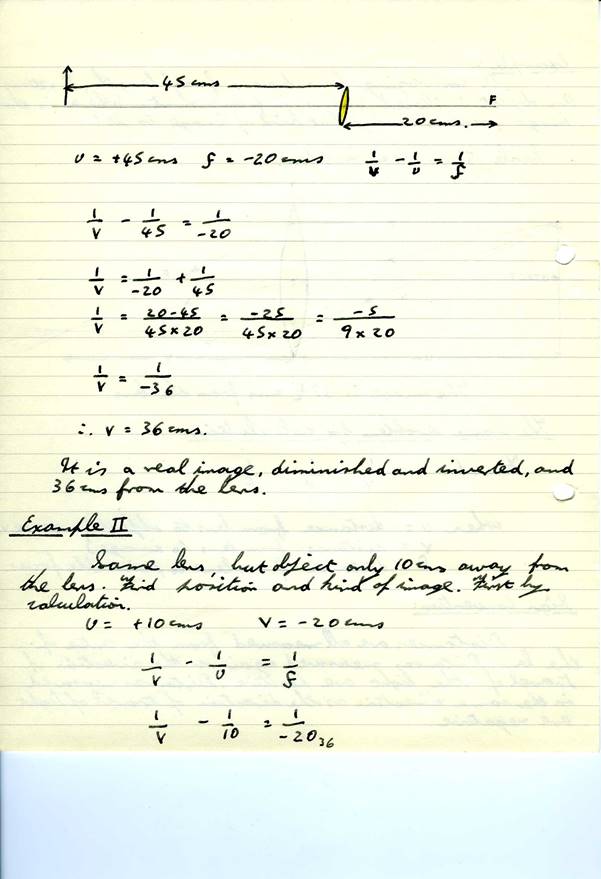 45 cms
F
20 cms.
U = +45 cms f = -20 cms 1/v - 1/u = 1/f
1/v - 1/45 = 1/-20
1/v = 1/-20 + 1/45
1/v = 20-45/45×20 = -25/45×20 = -5/9×20
1/v = 1/-36
∴ v = 36 cms.
It is a real image, diminished and inverted, and
36 cms from the lens.
Example II
Same lens, but object only 10 cms away from
the lens. Find position and kind of image. First by
calculation.
U = +10 cms V = -20 cms
1/v - 1/u = 1/f
1/v - 1/10 = 1/-20
36